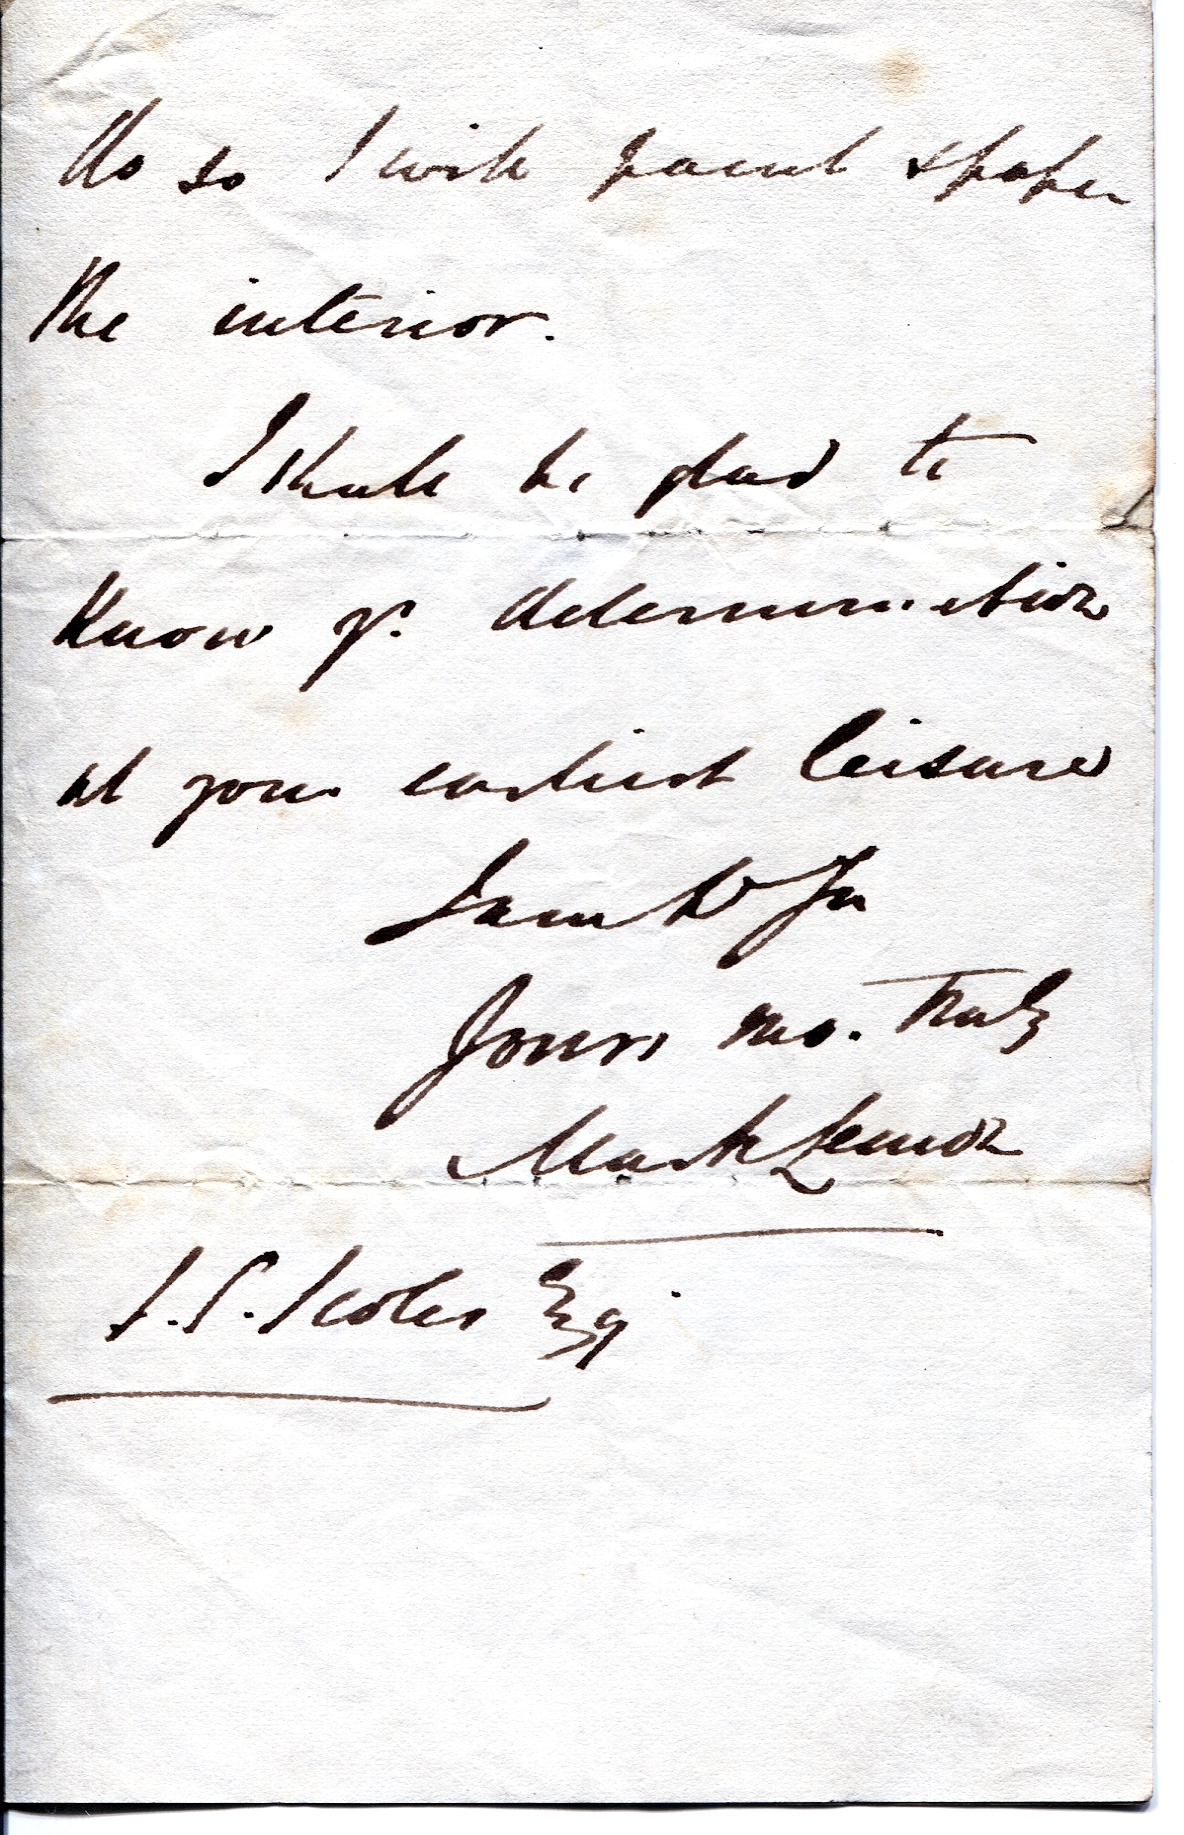 do so I will paint & paper
the interior.
I shall be glad to
know yr. determination
at your earliest leisure
I am D Sir
Yours mo. Truly
Mark Lemon
J.S. Scoles Esq